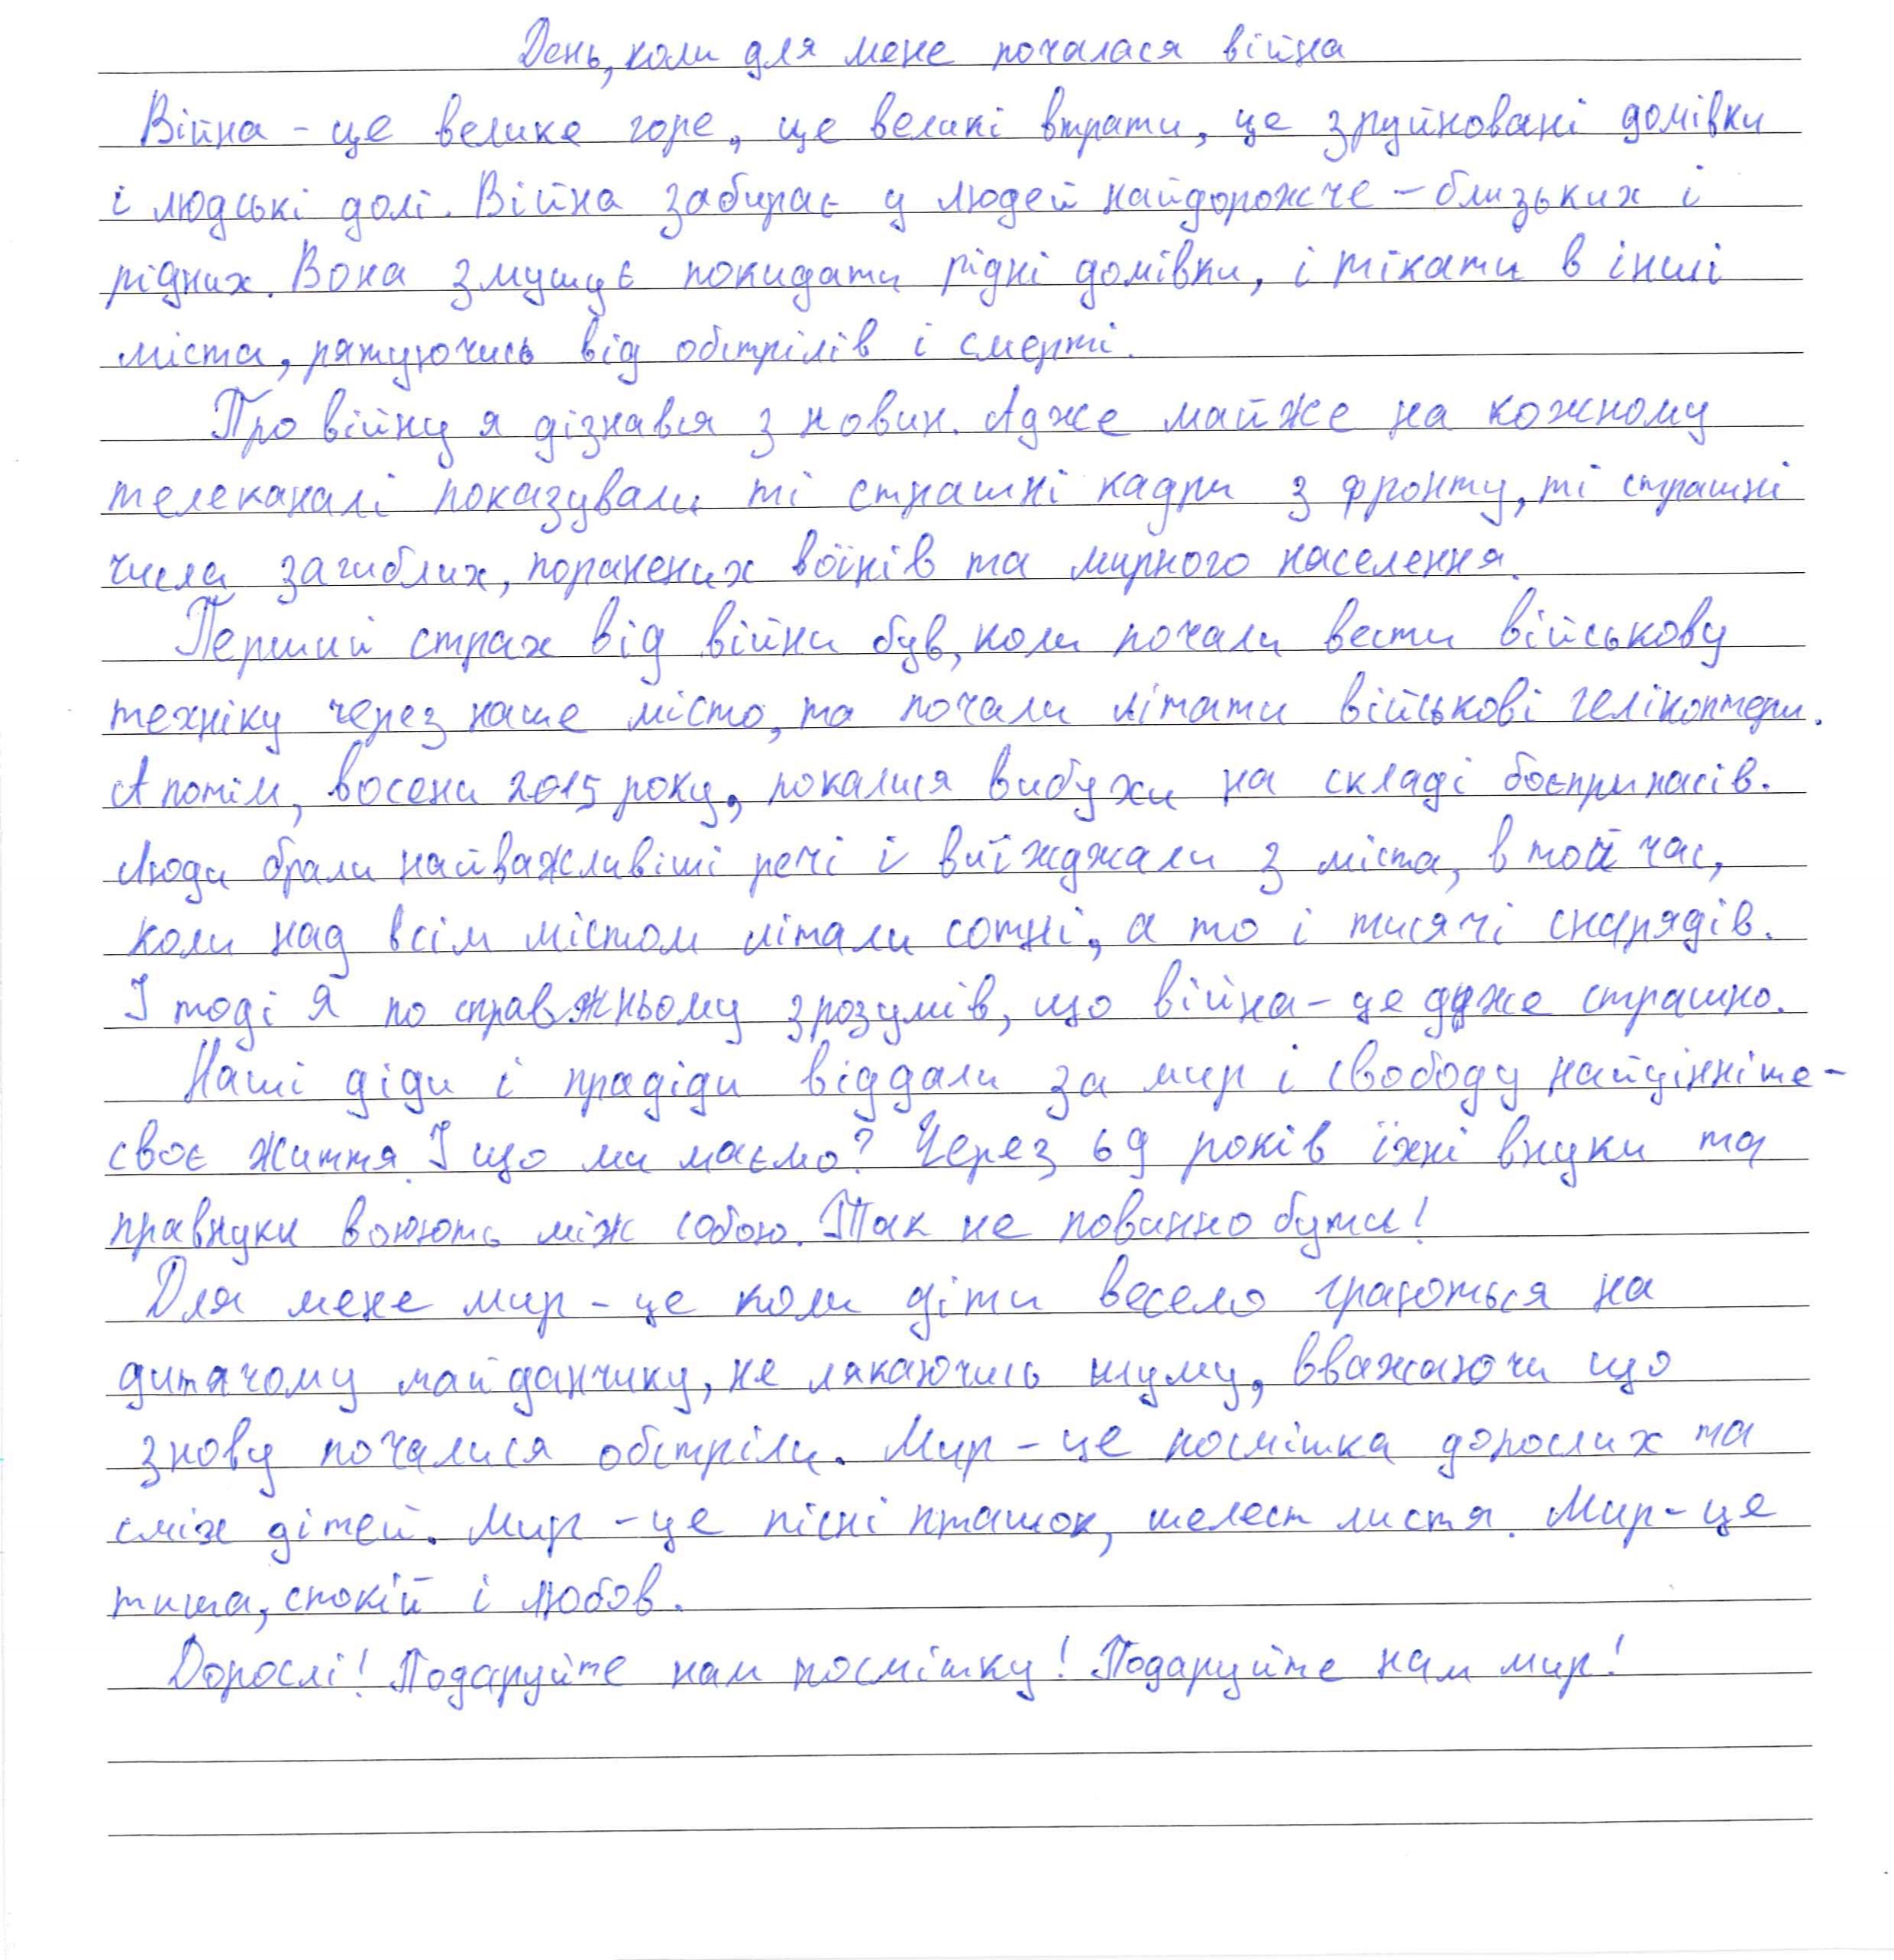 День, коли для мене почалася війна
Війна - це велике горе, це великі втрати, це зруйновані домівки
і людські долі. Війна забирає у людей найдорожче - близьких і
рідних. Вона змушує покидати рідні домівки, і тікати в інші
міста, рятуючись від обстрілів і смерті.
Про війну я дізнався з новин. Адже майже на кожному
телеканалі показували ті страшні кадри з фронту, ті страшні
числа загиблих, поранених воїнів та мирного населення.
Перший страх від війни був, коли почали вести військову
техніку через наше місто, та почали літати військові гелікоптери.
А потім, восени 2015 року, покалися вибухи на складі боєприпасів.
Люди брали найважливіші речі і виїжджали з міста, в той час,
коли над всім містом літали сотні, а то і тисячі снарядів.
І тоді я по справжньому зрозумів, що війна - це дуже страшно.
Наші діди і прадіди віддали за мир і свободу найцінніше -
своє життя. І що ми маємо? Через 69 років їхні внуки та
правнуки воюють між собою. Так не повинно бути!
Для мене мир - це коли діти весело граються на
дитячому майданчику, не лякаючись шуму, вважаючи що
знову почалися обстріли. Мир - це посмішка дорослих та
сміх дітей. Мир - це пісні пташок, шелест листя. Мир - це
тиша, спокій і любов.
Дорослі! Подаруйте нам посмішку! Подаруйте нам мир!